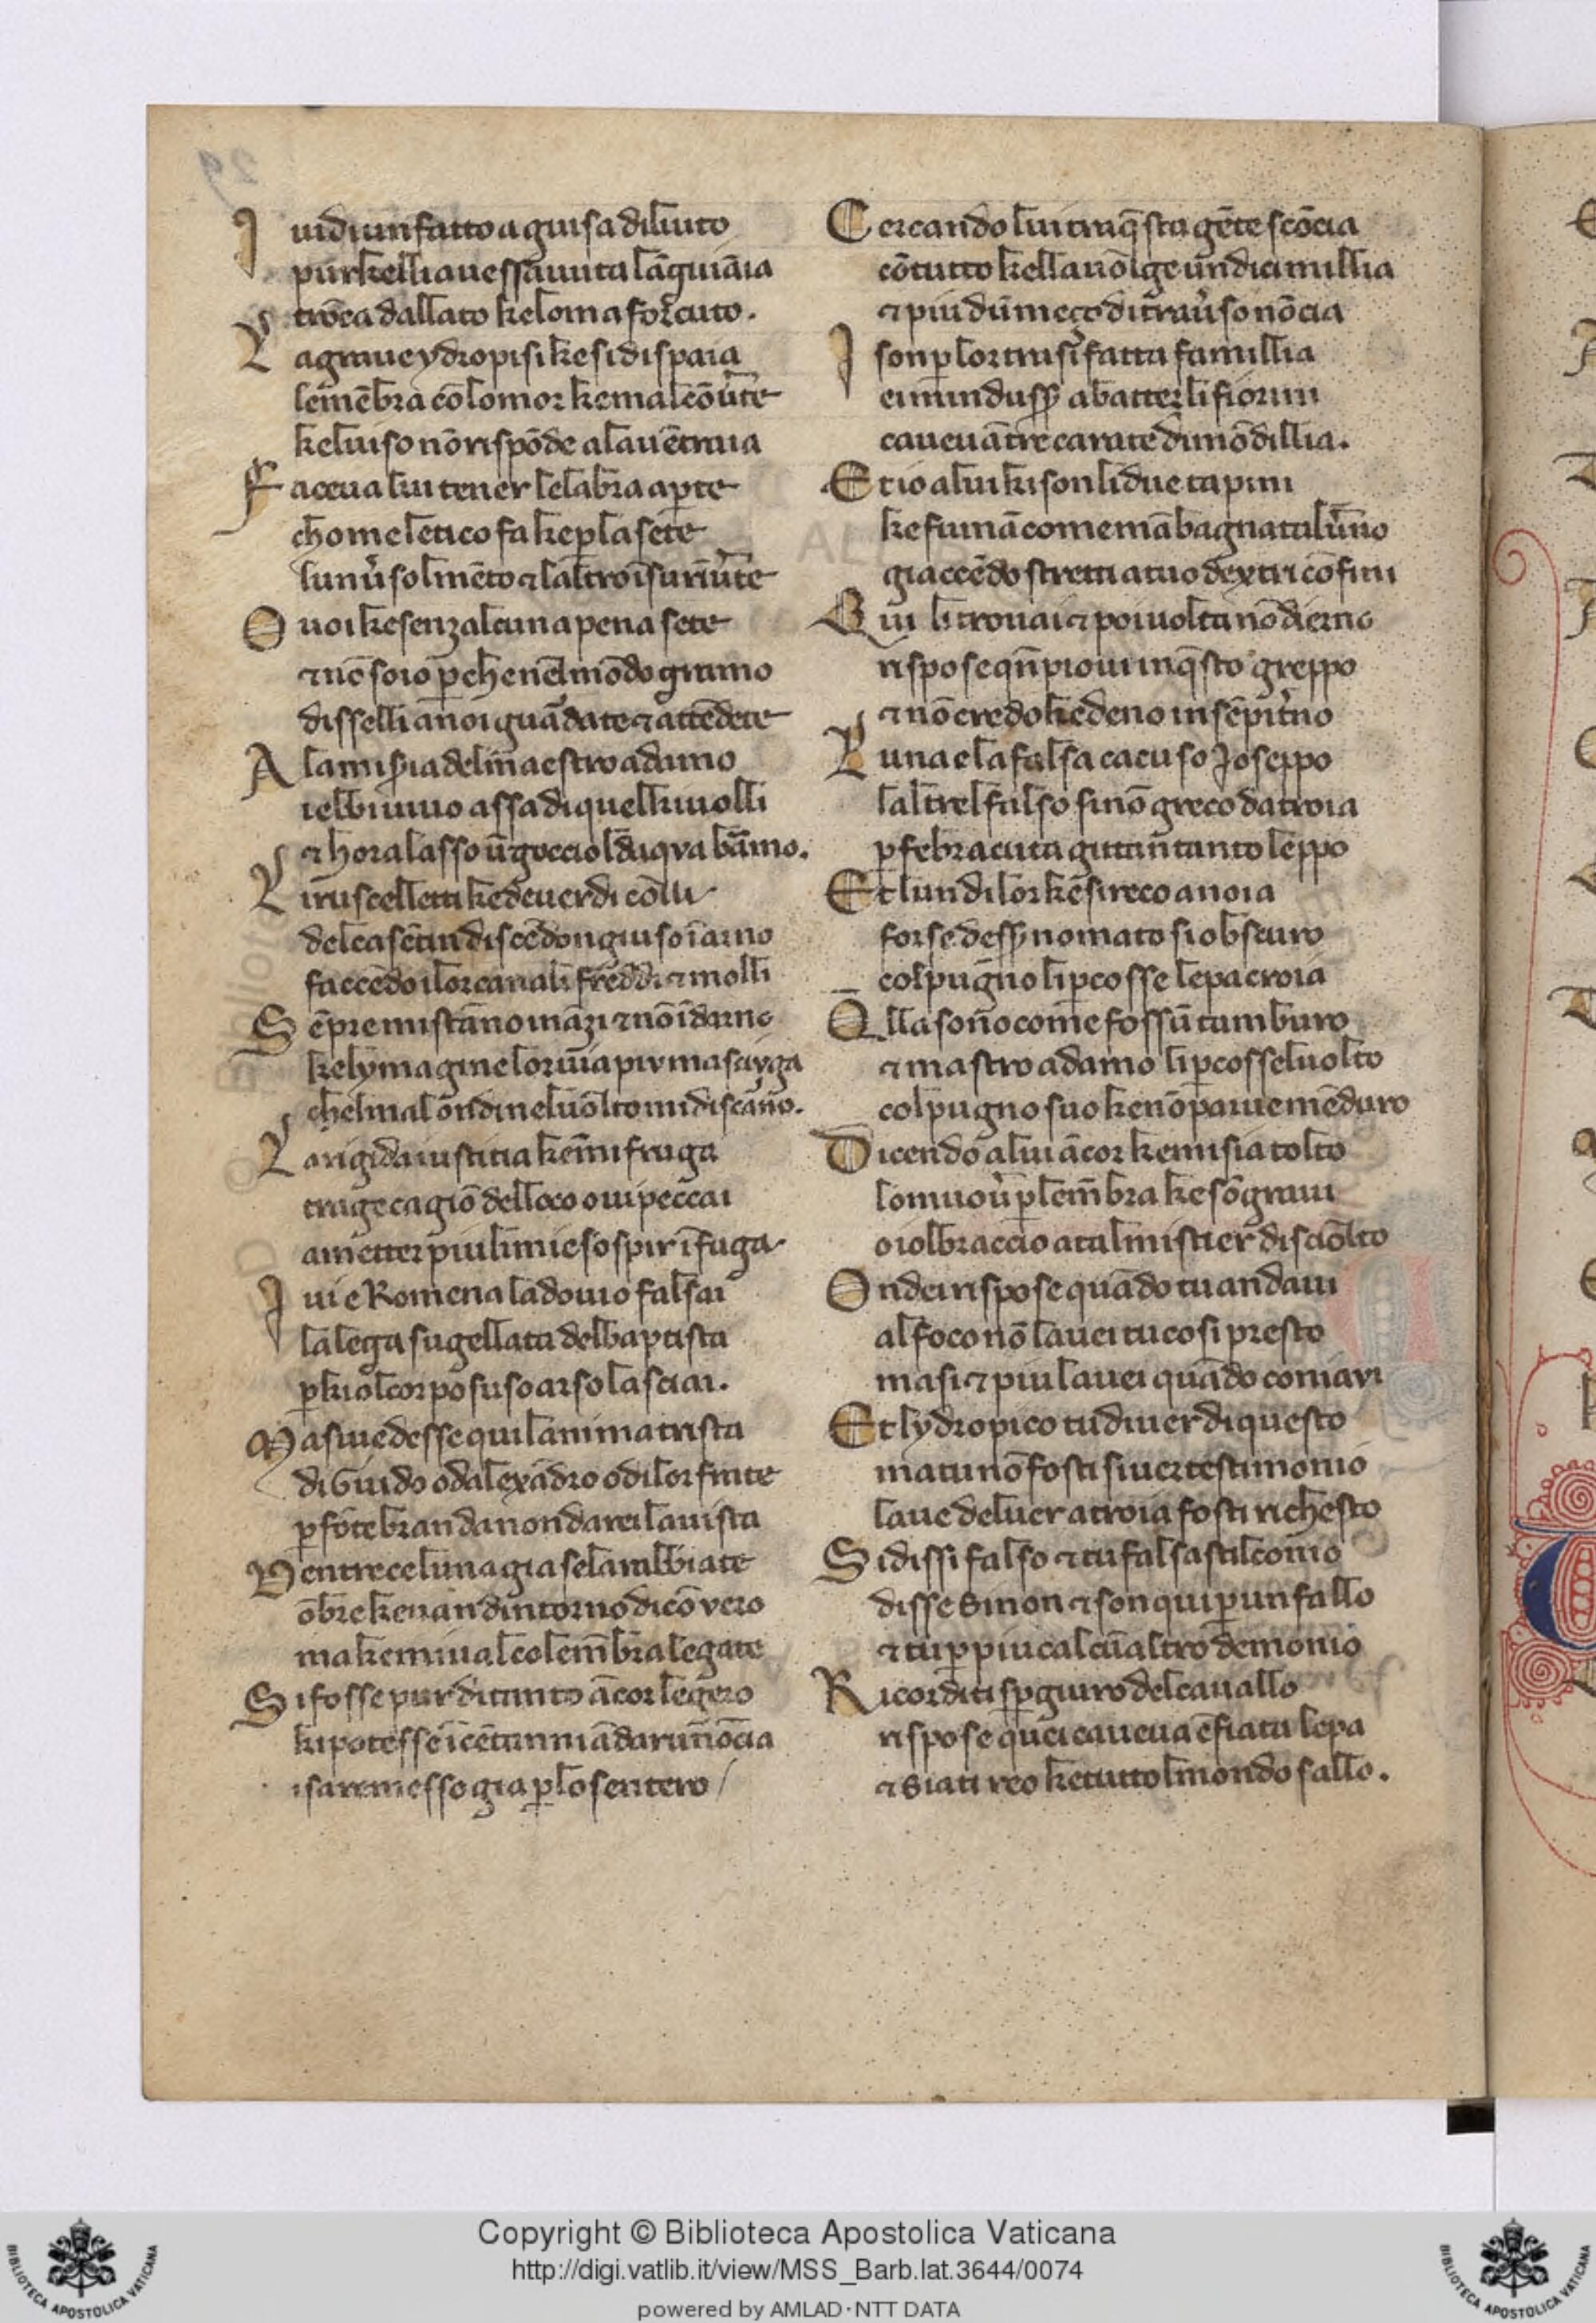 I uidi un fatto a guisa di liuto
pur kelli auess auuta lāguināia
trōca dallato ke lomo a forcuto.
L a graue ydropisi ke si dispaia
le mēbra cō lomor ke mal cōuˀte
kel uiso nō rispōde a la uētraia
F aceua lui tener le labra aꝑte
chome letico fa ke ꝑ la sete
lunuˀso lmēto ⁊ laltro ī su rīuˀte
O uoi ke senza alcuna pena sete
⁊ nō so io ꝑche nel mōdo gramo
disselli a noi guardate ⁊ attēdete
A la misˀia del maestro adamo
io ebbi uiuo assa di quelli uolli
⁊ hora lasso ū gocciol daqva bramo.
L i ruscelletti ke de uerdi colli
del casētin discēdon giuso ī arno
faccēdo i lor canali freddi ⁊ molli
S ēpre mi stāno ināzi ⁊ nō īdarno
ke lymagine lor uia piu masciuga
chel mal ondi nel uolto mi discarno.
L a rigida iustitia ke mi fruga
trage cagiō del loco oui peccai
a metter piu li mie sospir ī fuga
I ui e Romena la douio falsai
la lega sugellata del baptista
ꝑ kiol corpo suso arso lasciai.
M a sio uedesse qui lanima trista
di Guido o dalexādro o di lor frate
ꝑ fōte branda non darei la uista
D entro ce luna gia se larabbiate
ōbre ke uan dintorno dicō vero
ma ke mi ual co le mēbra legate
S i fosse pur di tanto ācor legero
ki potesse ī cētanni ādar unōcia
i sarei messo gia ꝑ lo sentero /
C ercando lui tra q̄sta gēte scōcia
cō tutto kella uolge undici millia
⁊ piu dū meço di trauˀso nō cia
I son ꝑ lor tra si fatta famillia
ei mindussˀ a batter li fiorini
caueuā tre carate di mōdillia.
E t io a lui ki son li due tapini
ke fumā come man bagnata luˀno
giaccēdo stretti a tuo dextri cōfini
Q ui li trouai ⁊ poi uolta nō dierno
rispose qn̄ pioui in q̄sto greppo
⁊ nō credo ke deno in sēpitˀno
L una e la falsa cacuso Ioseppo
laltrel falso sinō greco da troia
ꝑ febra cuta gittan tanto leppo
E t lun di lor ke si reco a noia
forse dessˀ nomato si obscuro
col pugno li ꝑcosse lepa croia
Q̄ lla sono come fossū tamburo
⁊ mastro adamo li ꝑcosse luolto
col pugno suo ke nō parue mē duro
D icendo a lui ācor ke mi sia tolto
lo muouˀ ꝑ le mēbra ke sō graui
o iol braccio a tal mistier disciolto
O nde i rispose quādo tu andaui
al foco nō lauei tu cosi presto
ma si ⁊ piu lauei quādo coniavi
E t lydropico tu di uer di questo
ma tu nō fosti si uer testimonio
laue del uer a troia fosti richesto
S i dissi falso ⁊ tu falsastil conio
disse Sinon ⁊ son qui ꝑ un fallo
⁊ tu ꝑ piu calcū altro demonio
R icorditi spˀgiuro del cauallo
rispose quei caueua ēfiata lepa
⁊ siati reo ke tuttol mondo sallo.
Copyright © Biblioteca Apostolica Vaticana
http://digi.vatlib.it/view/MSS_Barb.lat.3644/0074
powered by AMLAD·NTT DATA